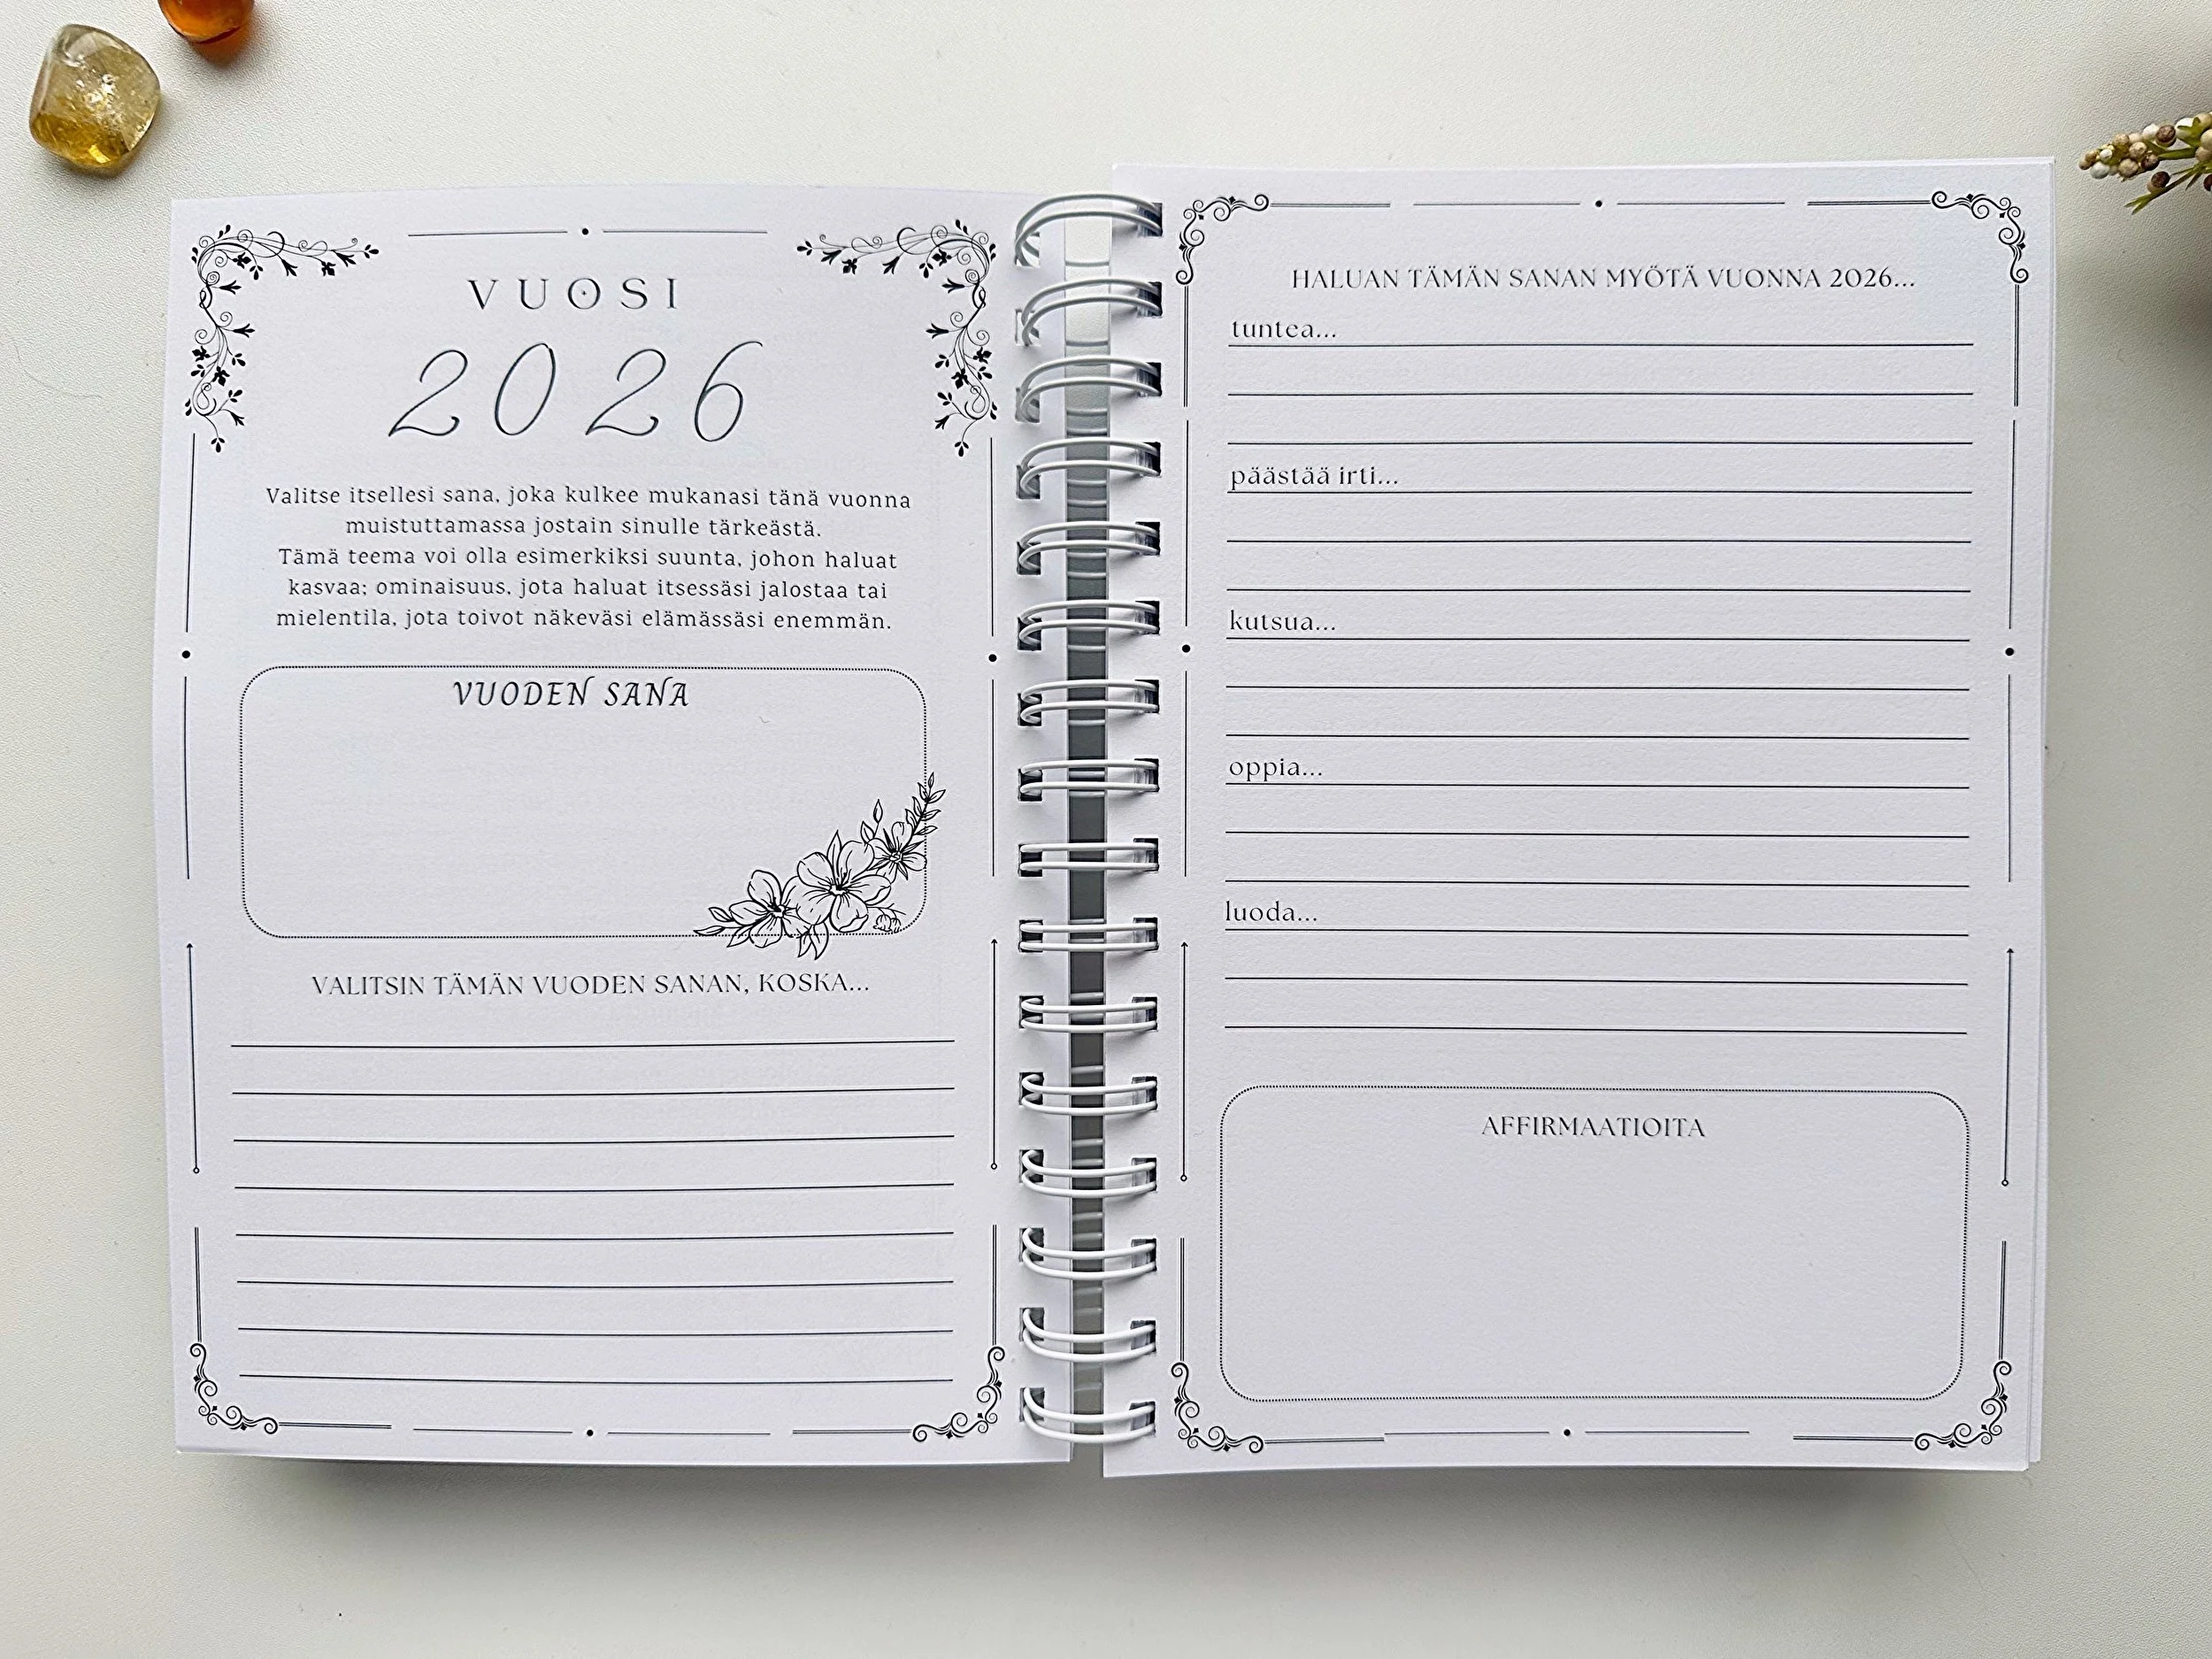 VUOSI
2026
Valitse itsellesi sana, joka kulkee mukanasi tänä vuonna
muistuttamassa jostain sinulle tärkeästä.
Tämä teema voi olla esimerkiksi suunta, johon haluat
kasvaa; ominaisuus, jota haluat itsessäsi jalostaa tai
mielentila, jota toivot näkeväsi elämässäsi enemmän.
VUODEN SANA
VALITSIN TÄMÄN VUODEN SANAN, KOSKA...
HALUAN TÄMÄN SANAN MYÖTÄ VUONNA 2026...
tuntea...
päästää irti...
kutsua...
oppia...
luoda...
AFFIRMAATIOITA